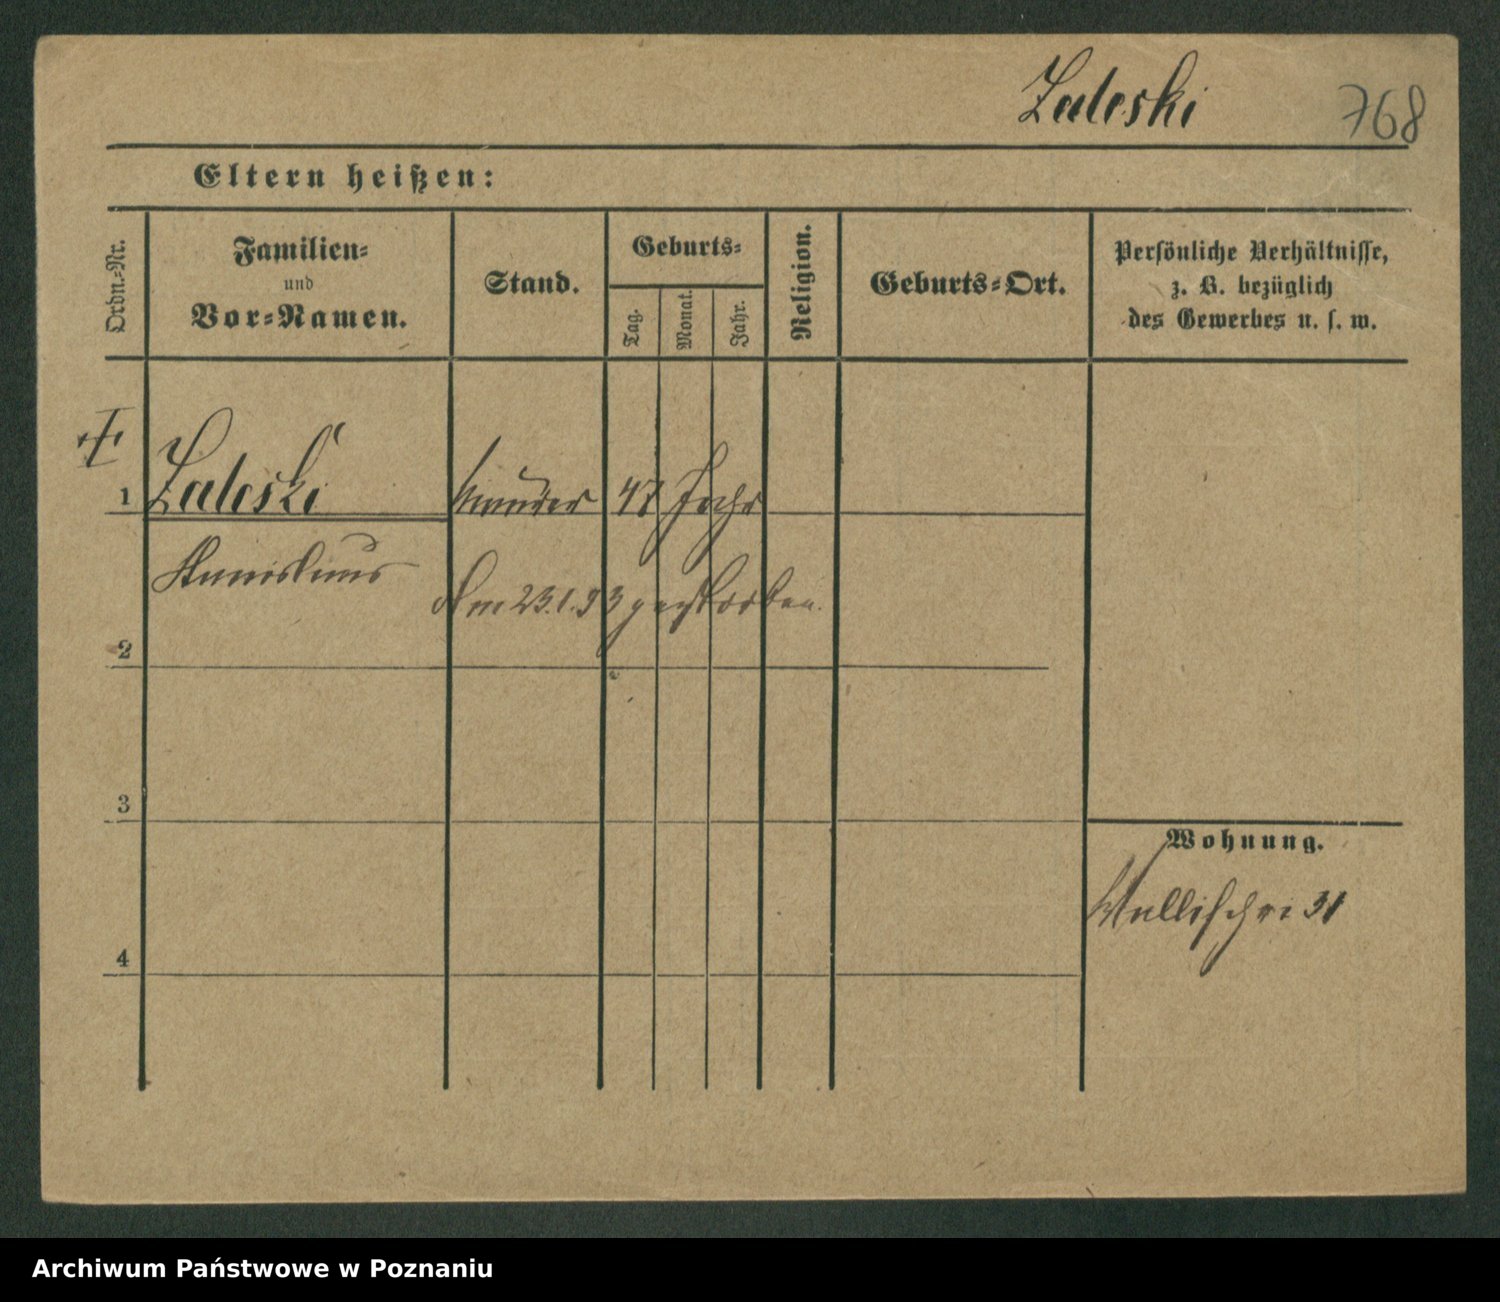 Zaleski 768
Eltern heißen:
Ordn.-Nr.
Familien-
und
Vor-Namen.
Stand.
Geburts-
Tag.
Monat.
Jahr.
Religion.
Geburts-Ort.
Persönliche Verhältnisse,
z. B. bezüglich
des Gewerbes u. s. w.
1 Zaleski 47 Jahr
Stanislaus
Am 23.1.93 gestorben.
2
3
Wohnung.
Wallischei 31
4
Archiwum Państwowe w Poznaniu